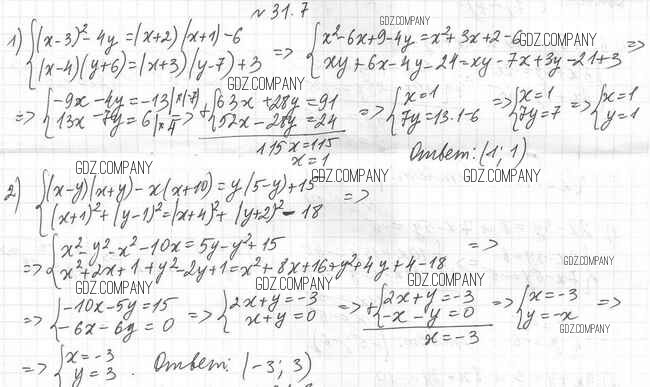 № 31.7
1) {(x-3)² - 4y = (x+2)(x+1) - 6
(x-4)(y+6) = (x+3)(y-7) + 3 => {x² - 6x + 9 - 4y = x² + 3x + 2 - 6
xy + 6x - 4y - 24 = xy - 7x + 3y - 21 + 3 =>
=> {-9x - 4y = -13 |×(-7)
13x - 7y = 6 |×4 => + {63x + 28y = 91
52x - 28y = 24
115x = 115
x = 1
=> {x = 1
7y = 13·1 - 6 => {x = 1
7y = 7 => {x = 1
y = 1
Ответ: (1; 1)
2) {(x-y)(x+y) - x(x+10) = y(5-y) + 15
(x+1)² + (y-1)² = (x+4)² + (y+2)² - 18 =>
=> {x² - y² - x² - 10x = 5y - y² + 15
x² + 2x + 1 + y² - 2y + 1 = x² + 8x + 16 + y² + 4y + 4 - 18 =>
=> {-10x - 5y = 15
-6x - 6y = 0 => {2x + y = -3
x + y = 0 => + {2x + y = -3
-x - y = 0
x = -3
=> {x = -3
y = -x =>
=> {x = -3
y = 3. Ответ: (-3; 3)
GDZ.COMPANY
GDZ.COMPANY
GDZ.COMPANY
GDZ.COMPANY
GDZ.COMPANY
GDZ.COMPANY
GDZ.COMPANY
GDZ.COMPANY
GDZ.COMPANY
GDZ.COMPANY
GDZ.COMPANY
GDZ.COMPANY